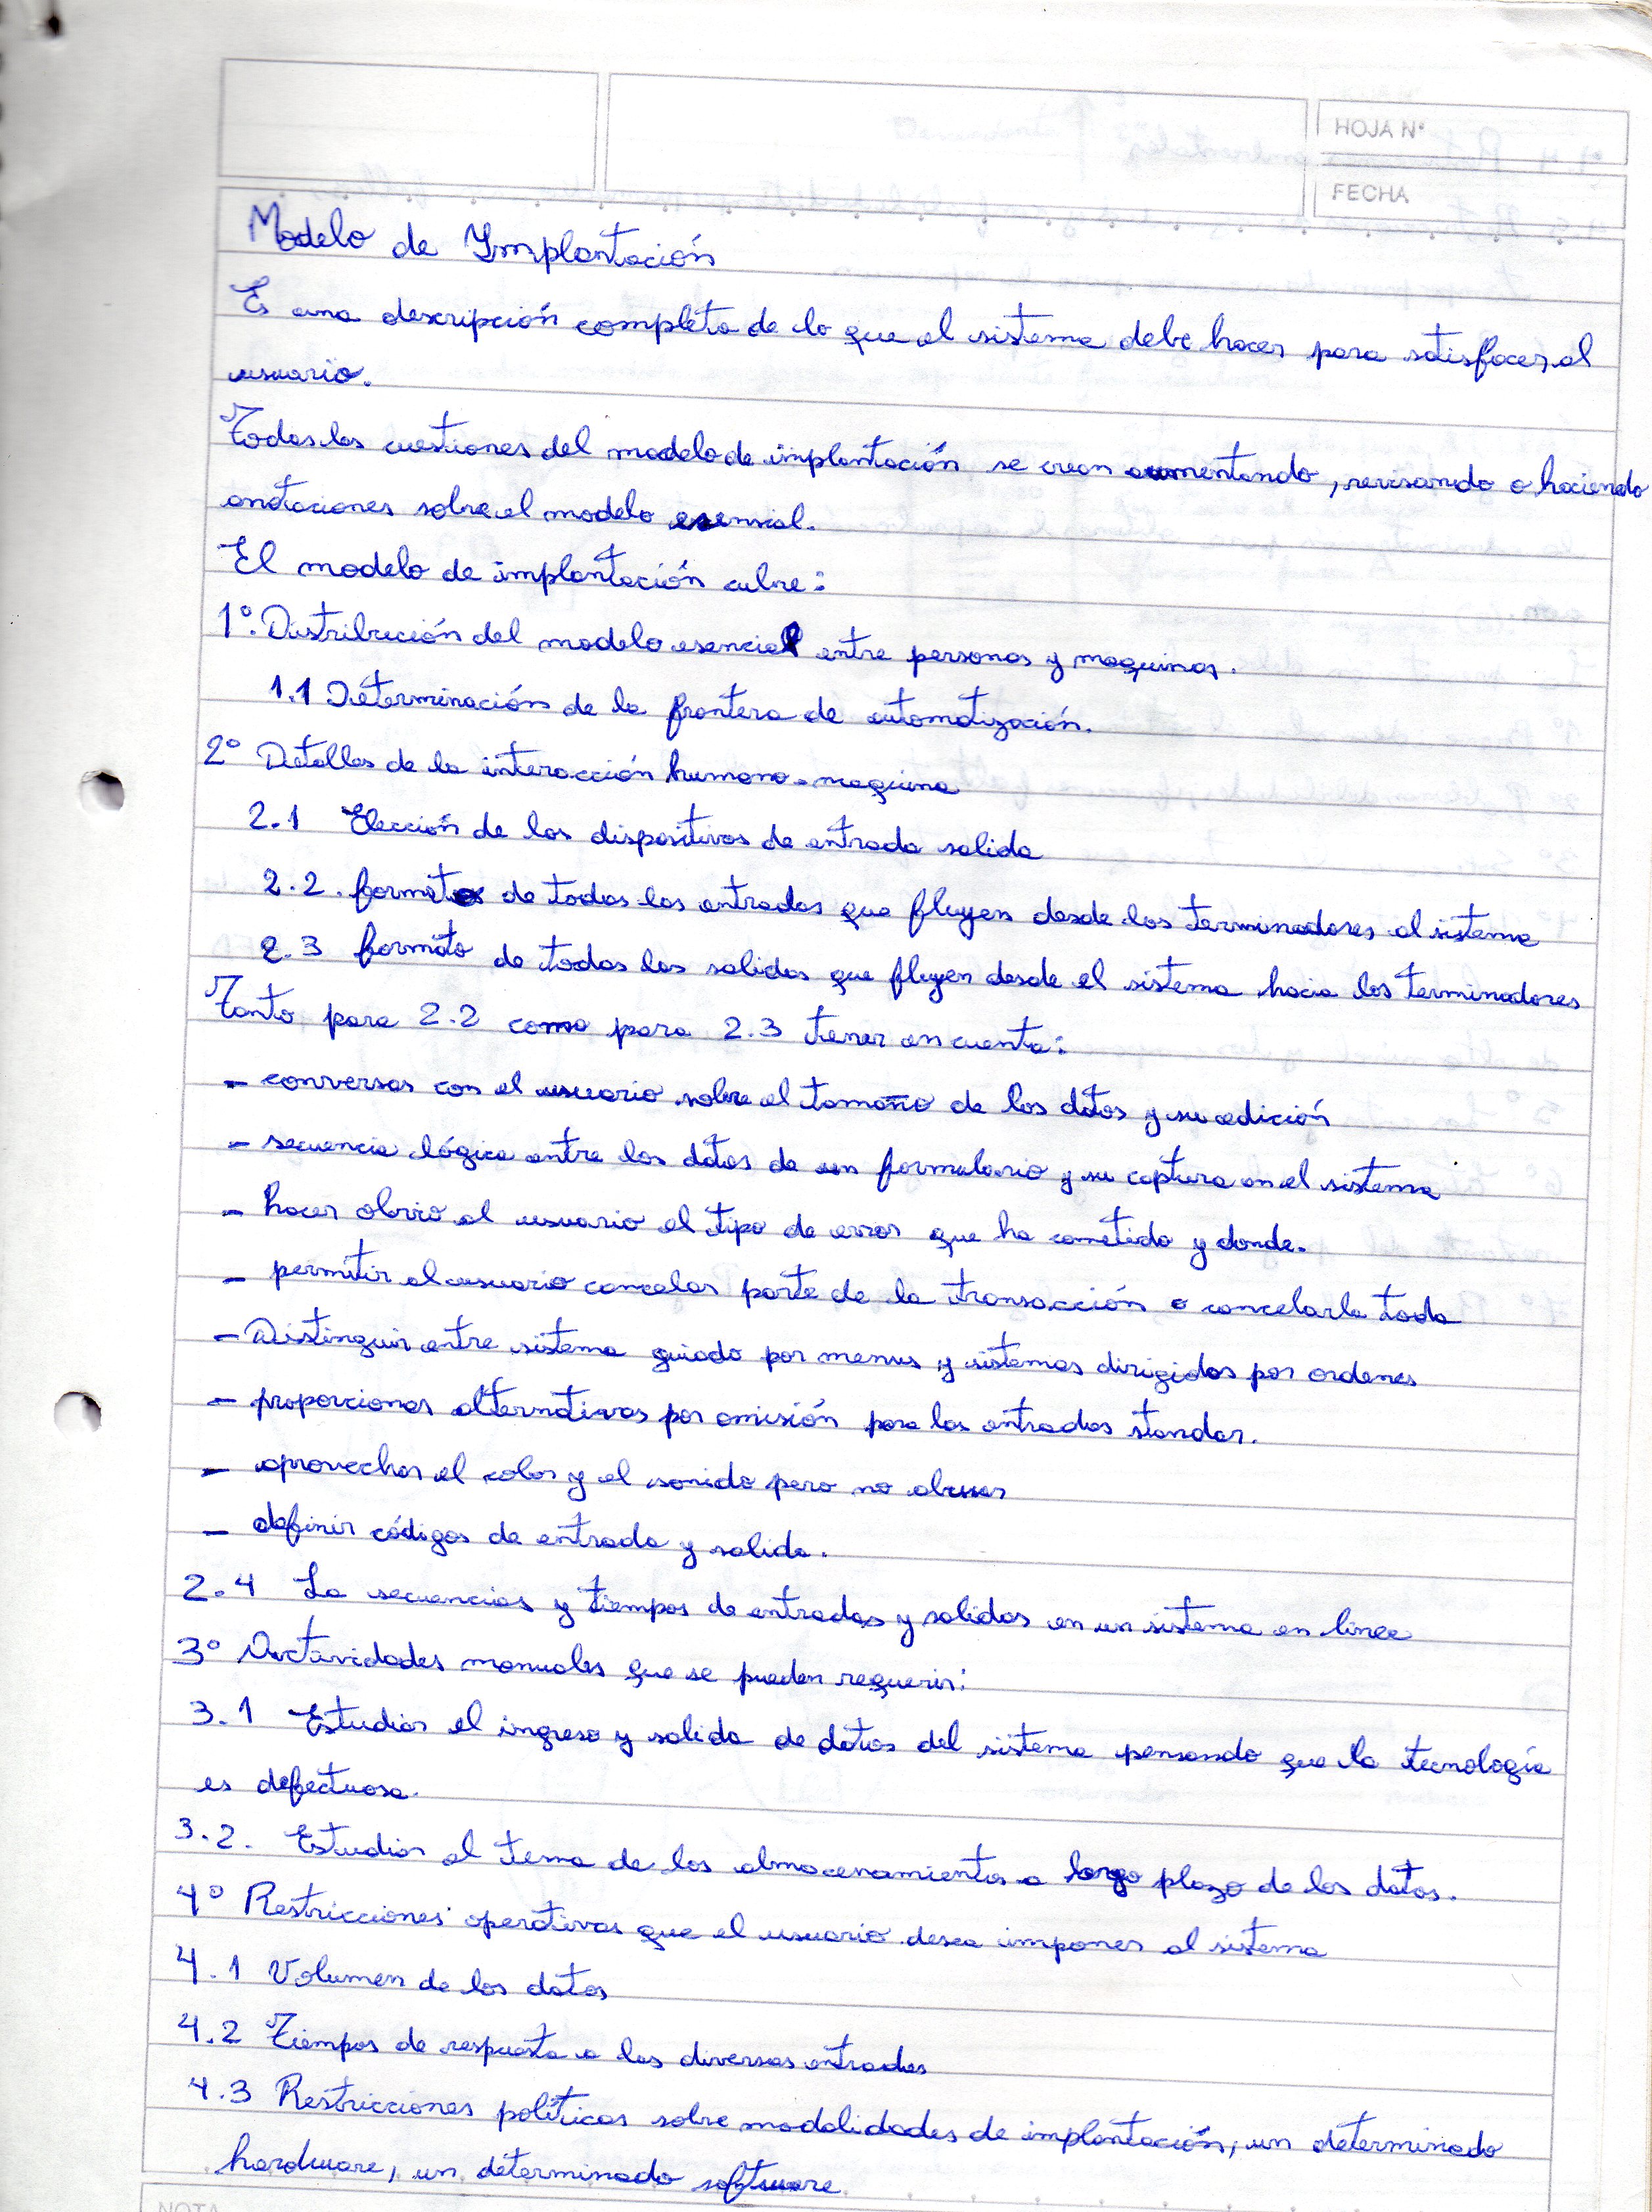 HOJA N°
FECHA
Modelo de Implantación
Es una descripción completa de lo que el sistema debe hacer para satisfacer al
usuario.
Todas las cuestiones del modelo de implantación se crean aumentando, revisando o haciendo
anotaciones sobre el modelo esencial.
El modelo de implantación cubre:
1°. Distribución del modelo esencial entre personas y maquinas.
1.1 Determinación de la frontera de automatización.
2° Detalles de la interacción humano-maquina
2.1 Elección de los dispositivos de entrada salida
2.2. formato de todas las entradas que fluyen desde los terminadores al sistema
2.3 formato de todas las salidas que fluyen desde el sistema hacia los terminadores
Tanto para 2.2 como para 2.3 tener en cuenta:
- conversar con el usuario sobre el tamaño de los datos y su edición
- secuencia lógica entre los datos de un formulario y su captura en el sistema
- hacer obvio al usuario el tipo de error que ha cometido y donde.
- permitir al usuario cancelar parte de la transacción o cancelarla toda
- Distinguir entre sistema guiado por menus y sistemas dirigidos por ordenes
- proporcionar alternativas por omisión para las entradas standar.
- aprovechar el color y el sonido pero no abusar
- definir códigos de entrada y salida.
2.4 La secuencias y tiempos de entradas y salidas en un sistema en linea
3° Actividades manuales que se pueden requerir:
3.1 Estudiar el ingreso y salida de datos del sistema pensando que la tecnología
es defectuosa.
3.2. Estudiar el tema de los almacenamientos a largo plazo de los datos.
4° Restricciones operativas que el usuario desea imponer al sistema
4.1 Volumen de los datos
4.2 Tiempos de respuesta a las diversas entradas
4.3 Restricciones políticas sobre modalidades de implantación, un determinado
hardware, un determinado software
NOTA